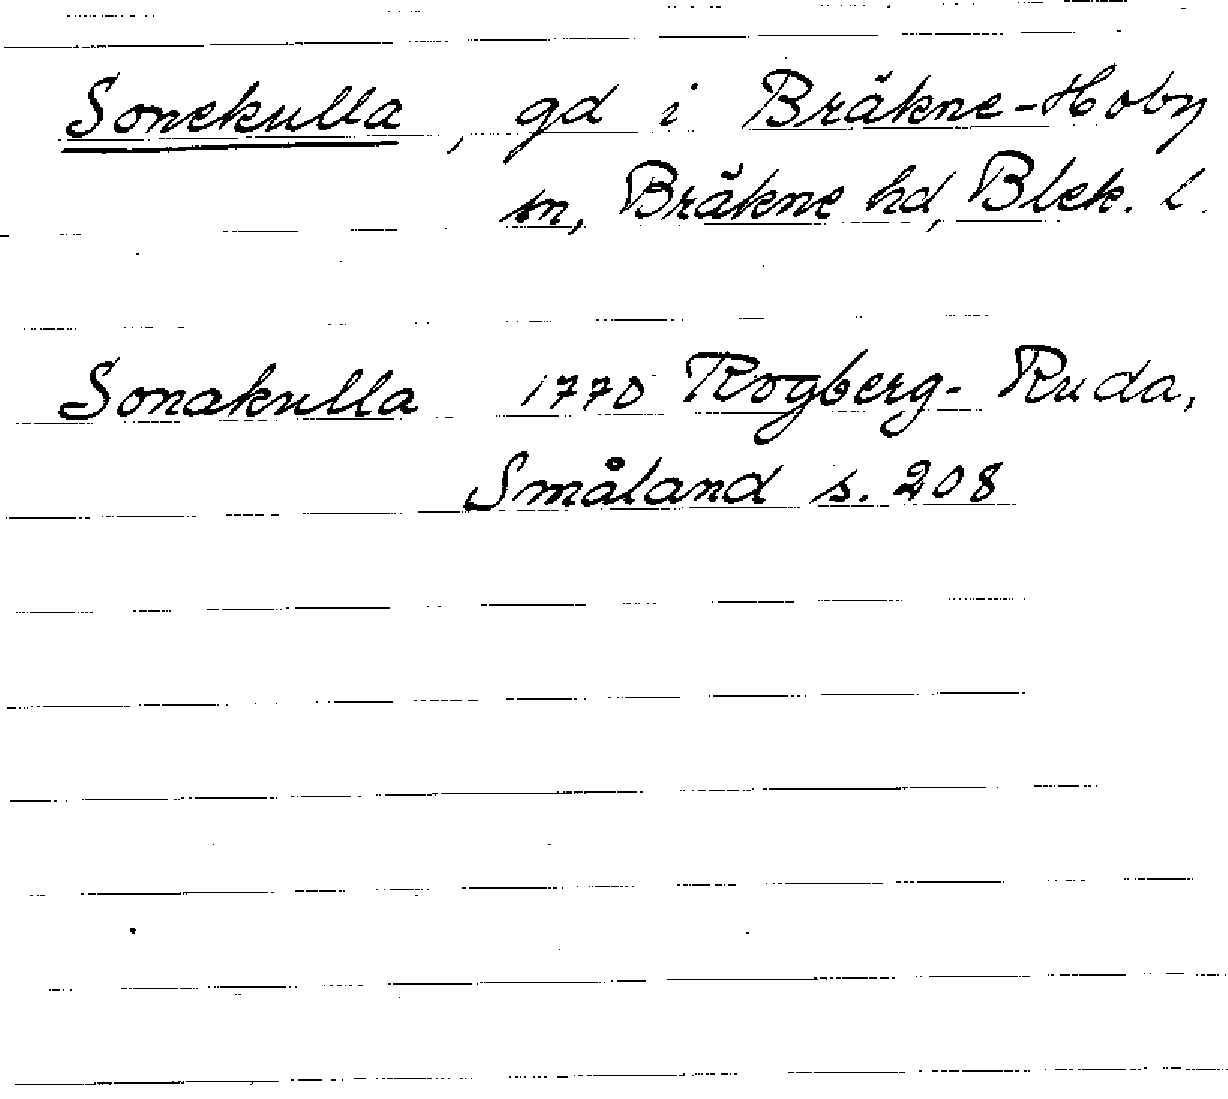 Sonekulla, gd i Bräkne-Hoby
sn, Bräkne hd, Blek. l.
Sonakulla 1770 Rogberg-Ruda,
Småland s. 208